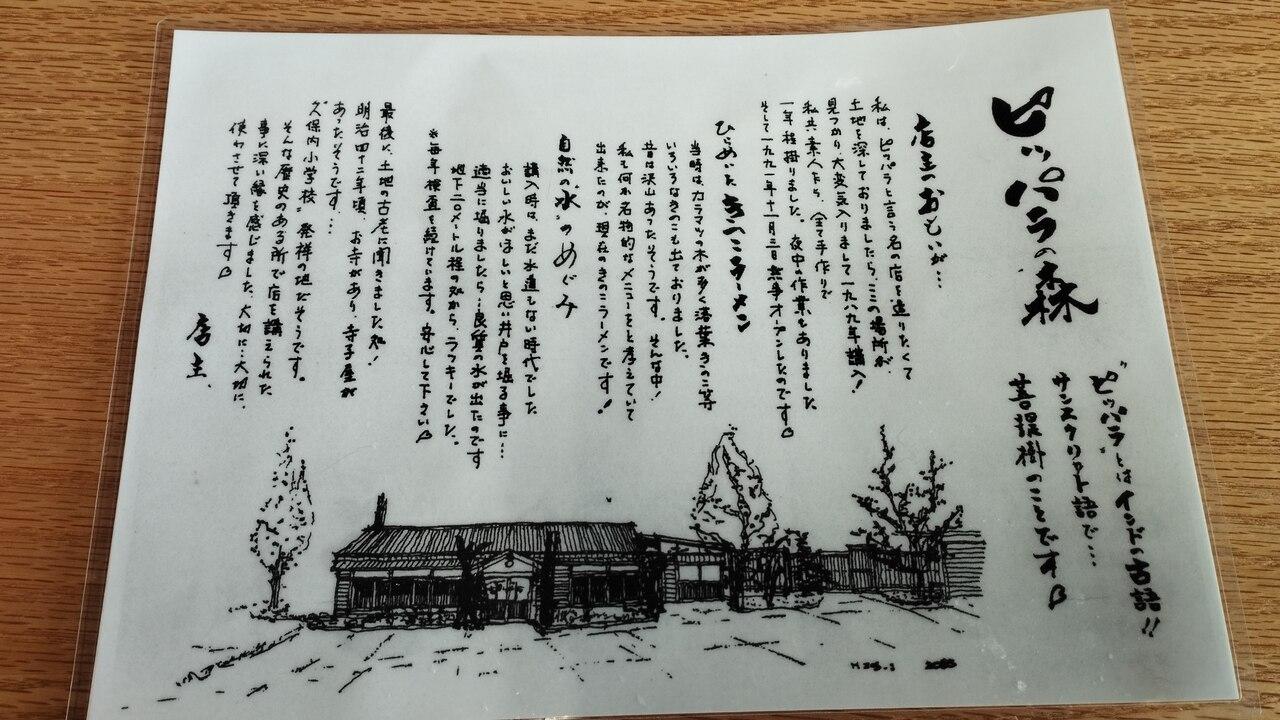 ピッパラの森
"ピッパラ"とはインドの古語!!
サンスクリット語で…
菩提掛のことです
店主のおもいが…
私は、ピッパラと言う名の店を造りたくて
土地を深しておりましたら、ここの場所が
見つかり大変気入りまして一九八九年購入!
私共素人たち、全て手作りで
一年程掛りました。夜中の作業もありました
そして一九九一年十一月三日無事オープンしたのです
ひらめいたきのこラーメン
当時はカラマツの木が多く落葉きのこ等
いろいろなきのこも出ておりました。
昔は沢山あったそうです。そんな中!
私も何か名物的なメニューをと考えていて
出来たのが、現在のきのこラーメンです!
自然の"水"のめぐみ
購入時は、まだ水道もない時代でした
おいしい水がほしいと思い井戸を掘る事に…
適当に掘りましたら…良質の水が出たのです
地下二〇メートル程の処から、ラッキーでした。
※毎年検査を続けています。安心して下さい
最後に、土地の古老に聞きました処!
明治四十二年頃、お寺があり、寺子屋が
あったそうです…
久保内小学校"発祥の地だそうです。
そんな歴史のある所で店を講えられた
事に深い縁を感じました、大切に…大切に、
使わさせて頂きます
店主、